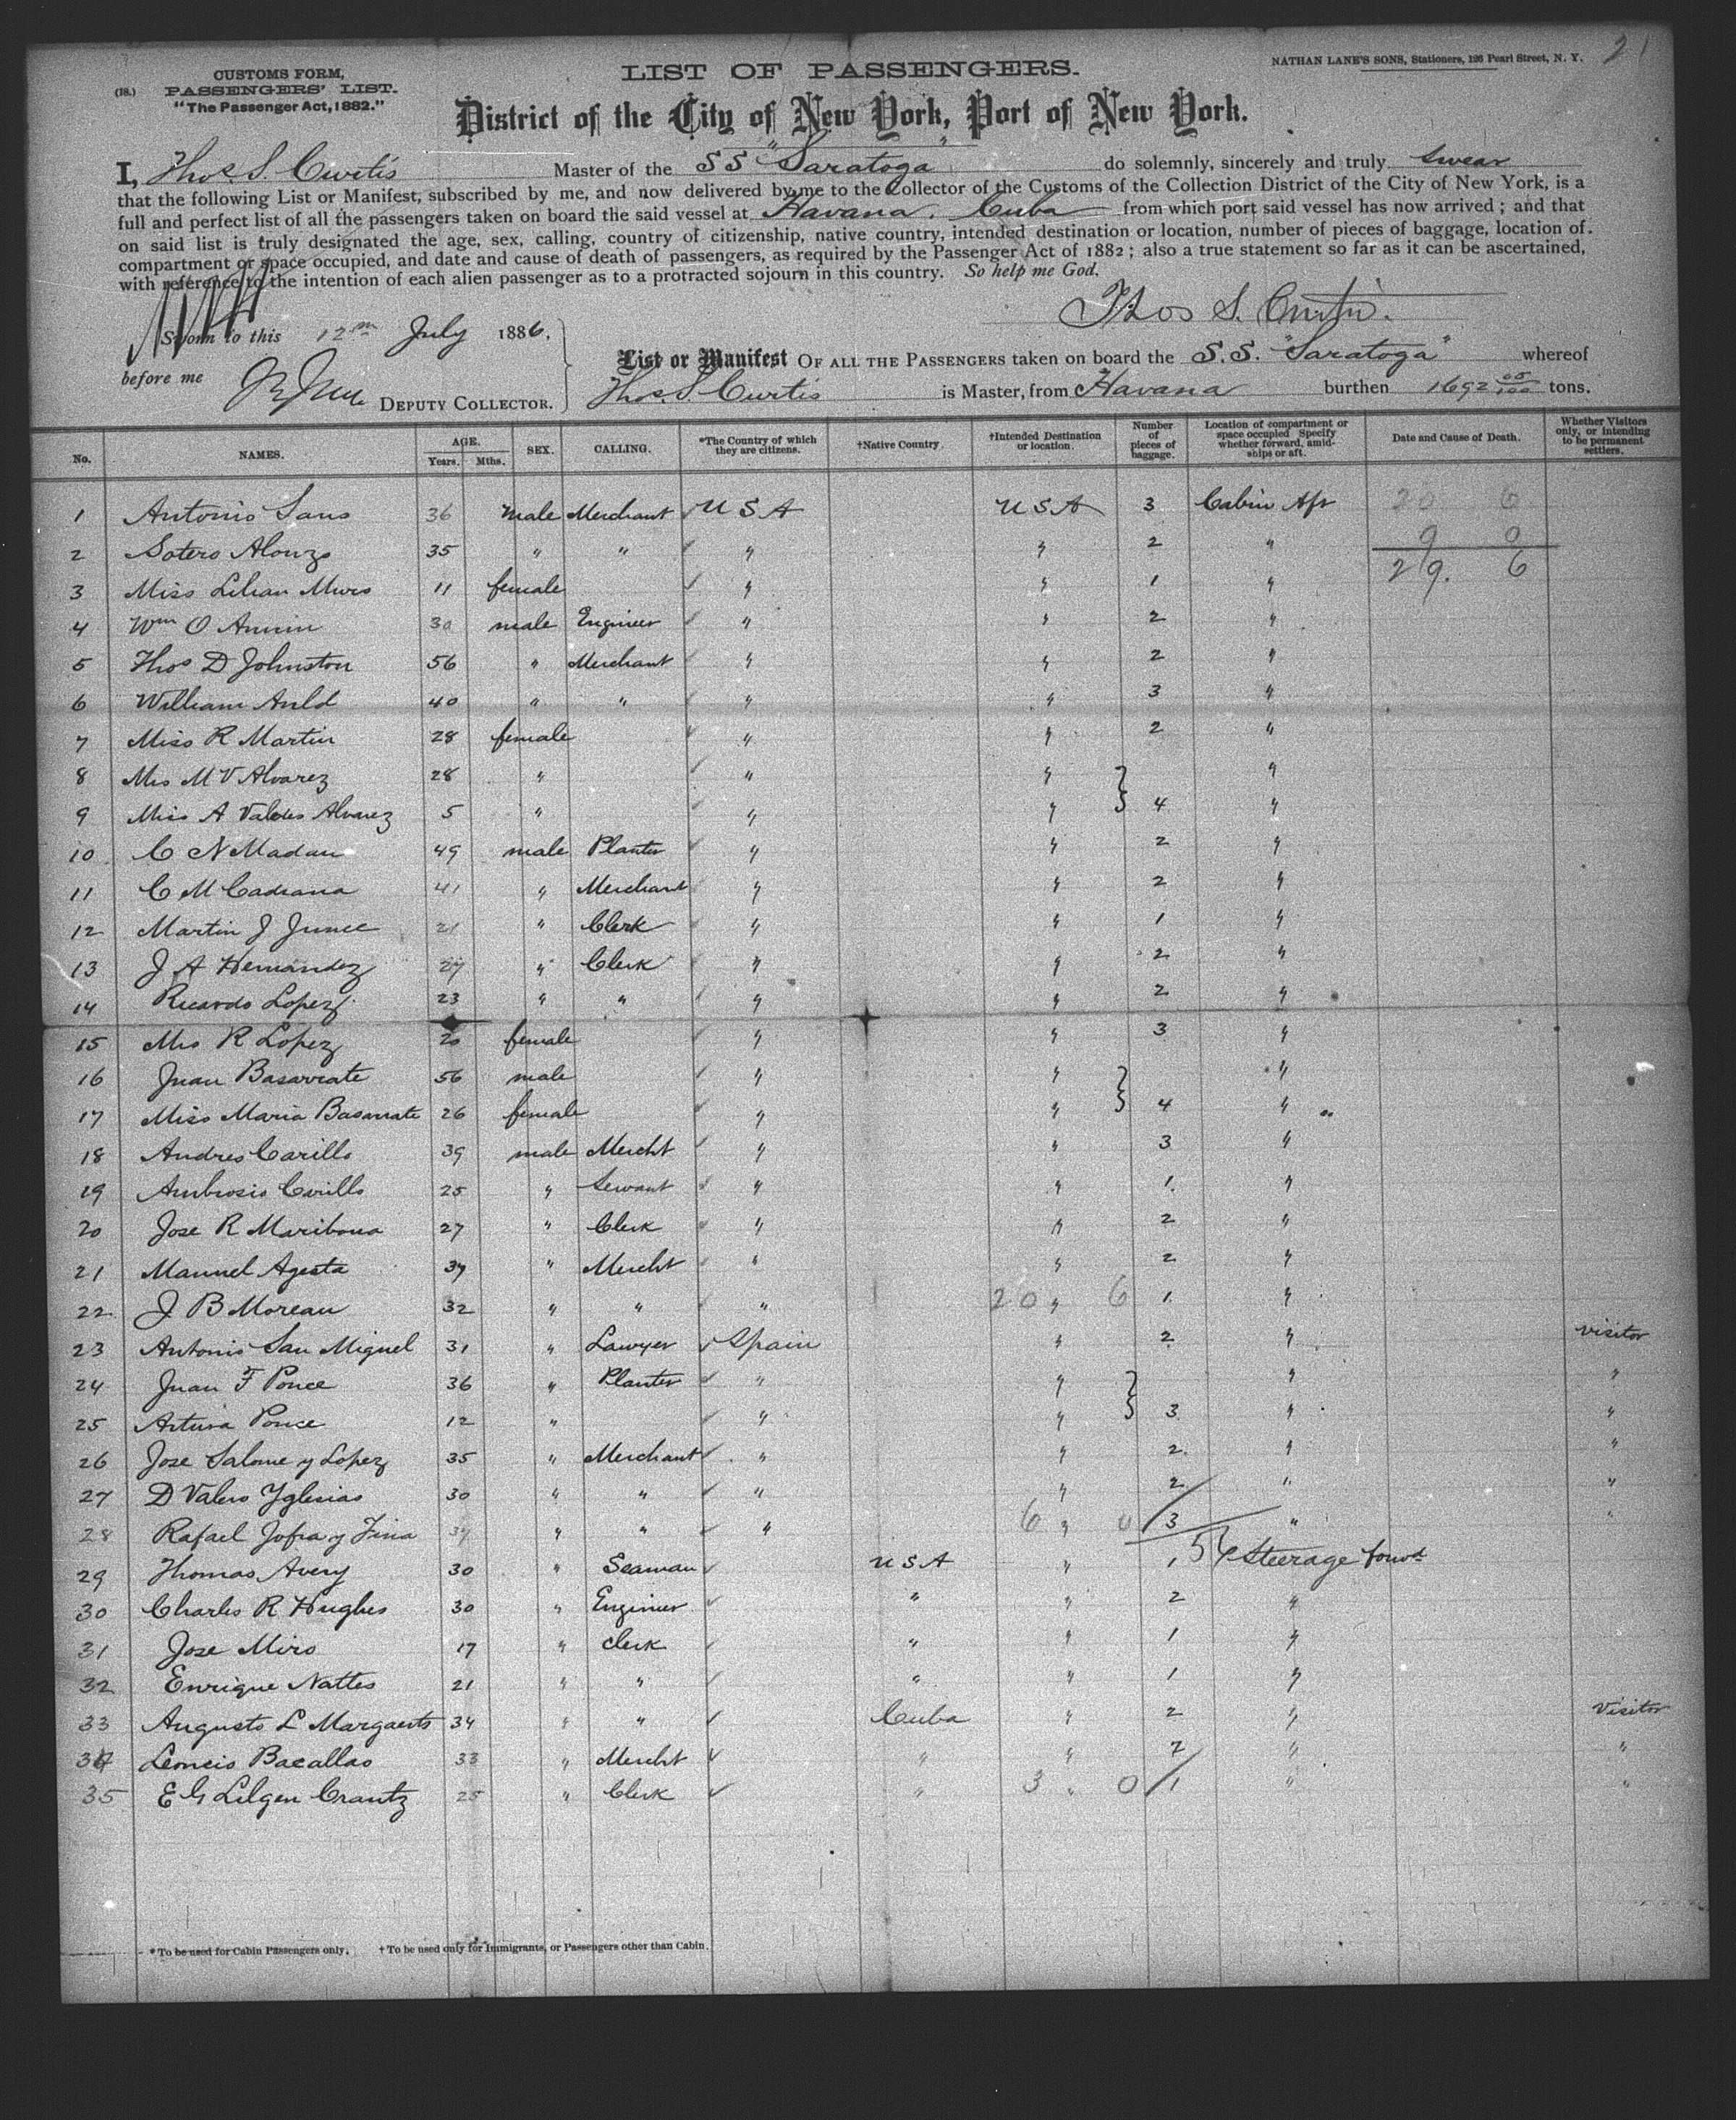 21
CUSTOMS FORM,
(18.) PASSENGERS' LIST.
"The Passenger Act, 1882."
LIST OF PASSENGERS.
NATHAN LANE'S SONS, Stationers, 126 Pearl Street, N. Y.
District of the City of New York, Port of New York.
I, Thos. S. Curtis Master of the SS "Saratoga" do solemnly, sincerely and truly swear
that the following List or Manifest, subscribed by me, and now delivered by me to the Collector of the Customs of the Collection District of the City of New York, is a
full and perfect list of all the passengers taken on board the said vessel at Havana, Cuba from which port said vessel has now arrived; and that
on said list is truly designated the age, sex, calling, country of citizenship, native country, intended destination or location, number of pieces of baggage, location of
compartment or space occupied, and date and cause of death of passengers, as required by the Passenger Act of 1882; also a true statement so far as it can be ascertained,
with reference to the intention of each alien passenger as to a protracted sojourn in this country. So help me God.
Thos S. Curtis.
Sworn to this 12th July 1886,
before me
DEPUTY COLLECTOR.
List or Manifest OF ALL THE PASSENGERS taken on board the S.S. "Saratoga" whereof
Thos. S. Curtis is Master, from Havana burthen 1692 05/100 tons.
No. NAMES. AGE. Years. Mths. SEX. CALLING. *The Country of which they are citizens. †Native Country. †Intended Destination or location. Number of pieces of baggage. Location of compartment or space occupied Specify whether forward, amidships or aft. Date and Cause of Death. Whether Visitors only, or intending to be permanent settlers.
1 Antonio Sans 36 male Merchant ✓ U S A U S A 3 Cabin Aft 20 6
2 Sotero Alonzo 35 " " ✓ " " 2 " 9 0
3 Miss Lilian 11 female ✓ " " 1 " 29. 6
4 Wm O Annin 30 male Engineer ✓ " " 2 "
5 Thos D Johnston 56 " Merchant ✓ " " 2 "
6 William Auld 40 " " ✓ " " 3 "
7 Miss R Martin 28 female ✓ " " 2 "
8 Mrs M V Alvarez 28 " ✓ " " } "
9 Miss A Valdes Alvarez 5 " ✓ " " } 4 "
10 C N Madan 49 male Planter ✓ " " 2 "
11 C M Cadrana 41 " Merchant ✓ " " 2 "
12 Martin J 21 " Clerk ✓ " " 1 "
13 J A Hernandez 27 " Clerk ✓ " " 2 "
14 Ricardo Lopez 23 " " ✓ " " 2 "
15 Mrs R Lopez 20 female ✓ " " 3 "
16 Juan Basarrate 56 male ✓ " " } "
17 Miss Maria Basarrate 26 female ✓ " " } 4 "
18 Andres Carillo 39 male Mercht ✓ " " 3 "
19 Ambrosio Carillo 25 " Servant ✓ " " 1. "
20 Jose R Maribona 27 " Clerk ✓ " " 2 "
21 Manuel Agesta " Mercht ✓ " " 2 "
22 J B Moreau 32 " " ✓ " 20 " 6 1. "
23 Antonio San Miguel 31 " Lawyer ✓ Spain " 2 " visitor
24 Juan F Ponce 36 " Planter ✓ " " } " "
25 Arturo Ponce 12 " ✓ " " } 3 " "
26 Jose Salome y Lopez 35 " Merchant ✓ " " 2 " "
27 D Valero Yglesias 30 " " ✓ " " 2 " "
28 Rafael Jofra y Fina " " ✓ " 6 " 0 3 " "
29 Thomas Avery 30 " Seaman ✓ U S A " 1 56 Steerage forwd
30 Charles R Hughes 30 " Engineer ✓ " " 2 "
31 Jose Miro 17 " Clerk ✓ " " 1 "
32 Enrique Nattes 21 " " ✓ " " 1 "
33 Augusto L Margaerts 34 " " ✓ Cuba " 2 " Visitor
34 Leoncio Bacallao 33 " Mercht ✓ " " 2 " "
35 E G Lilgen Crantz 25 " Clerk ✓ " 3 " 0 1 " "
*To be used for Cabin Passengers only. †To be used only for Immigrants, or Passengers other than Cabin.